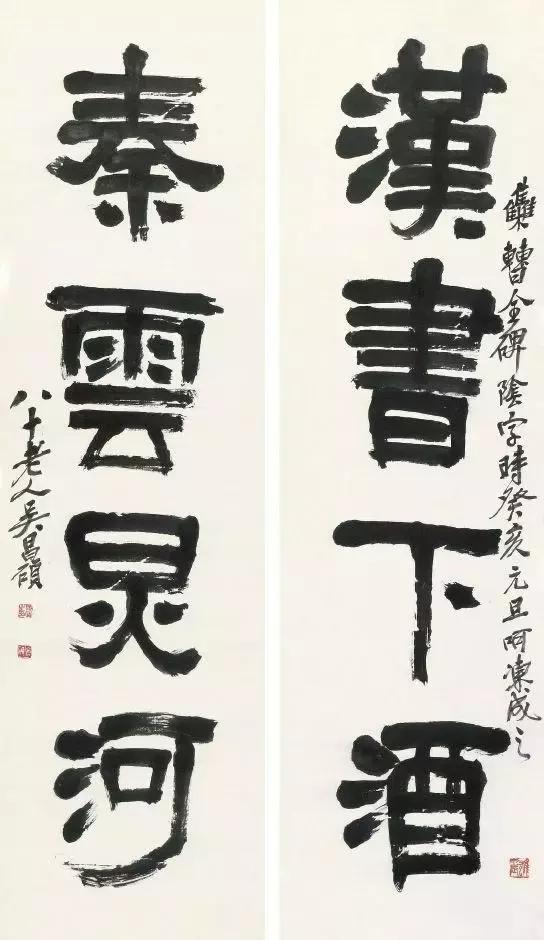 集曹全碑陰字時癸亥元旦呵凍成之
漢書下酒
秦雲炅河
八十老人吳昌碩